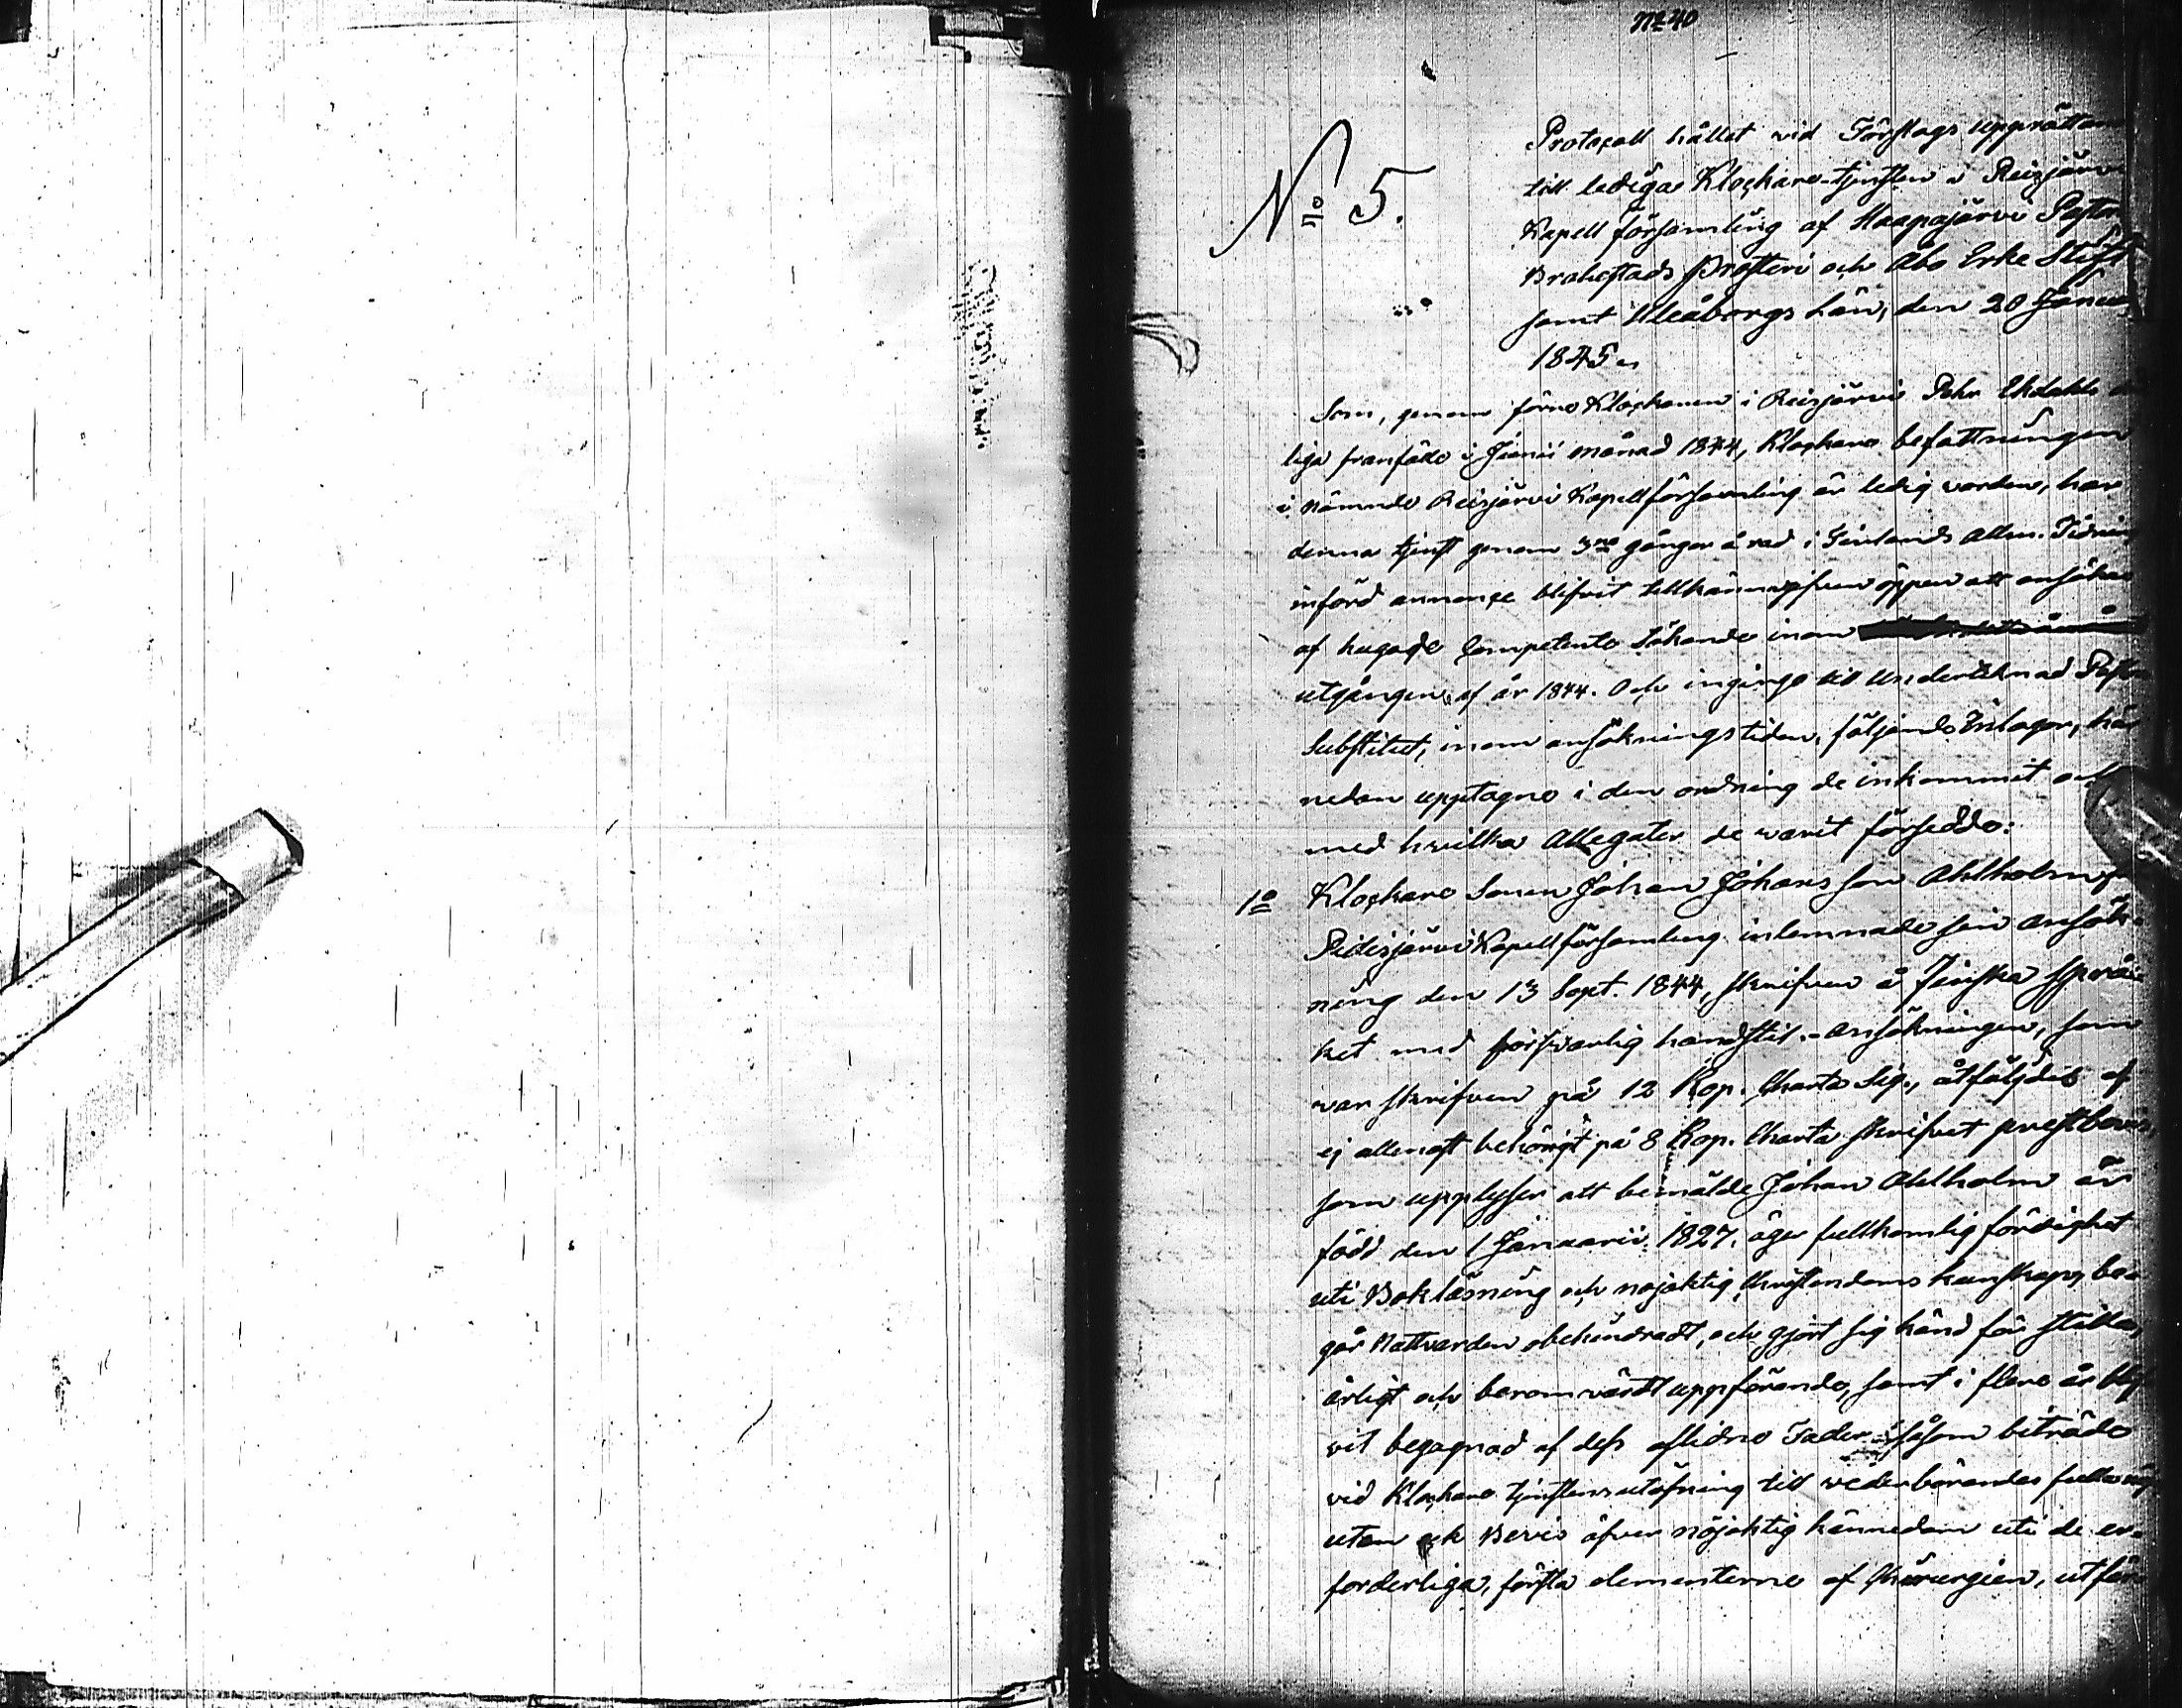 No 40
No 5.
Protocoll hållet vid Förslags upprättan
till lediga Klockare-tjensten i Reisjärvi
Kapell församling af Haapajärvi Pastor
Brahestads Prosteri och Åbo Erke Stift
samt Uleåborgs Län, den 20 Janua
1845.
Som, genom förre Klockaren i Reisjärvi Pehr Ekdahls
liga franfälle i Junii månad 1844, Klockare befattningen
i nämnde Reisjärvi Kapellförsamling är ledig vorden, har
denna tjenst genom 3ne gånger å rad i Finlands Allm. Tidnin
införd annonce blifvit tillkännagifven öppen att ansökas
af hugade competente Sökande inom
utgången af år 1844. Och ingingo till undertecknad Pastor
Substitut, inom ansökningstiden, följande Inlagor, här
nedan upptagne i den ordning de inkommit och
med hvilka Allegater de varit försedde:
1o Klockare Sonen Johan Johansson Ahlholm
Pidisjärvi Kapellförsamling inlemnade sin ansök-
ning den 13 Sept. 1844, skrifven å Finska språ-
ket med försvarlig handstil.- Ansökningen, som
var skrifven på 12 Kop. Charta Sig., åtföljdes af
ej allenast behörigt på 8 Kop. Charta skrifvet prestbevis,
som upplyser att bemälde Johan Ahlholm är
född den 1 Januarii 1827, äger fullkomlig färdighet
uti Bokläsning och nöjaktig Christendoms kunskap, be-
går Nattvarden obehindradt, och gjort sig känd för stilla,
ärligt och berömvärdt uppförande, samt i flere år blif
vit begagnad af dess aflidne Fader såsom biträde
vid Klockare tjenstens utöfning till vederbörandes fulla nöj
utan ock Bevis öfver nöjaktig kännedom uti de er-
forderliga, första elementerne af Chirurgien, utfär